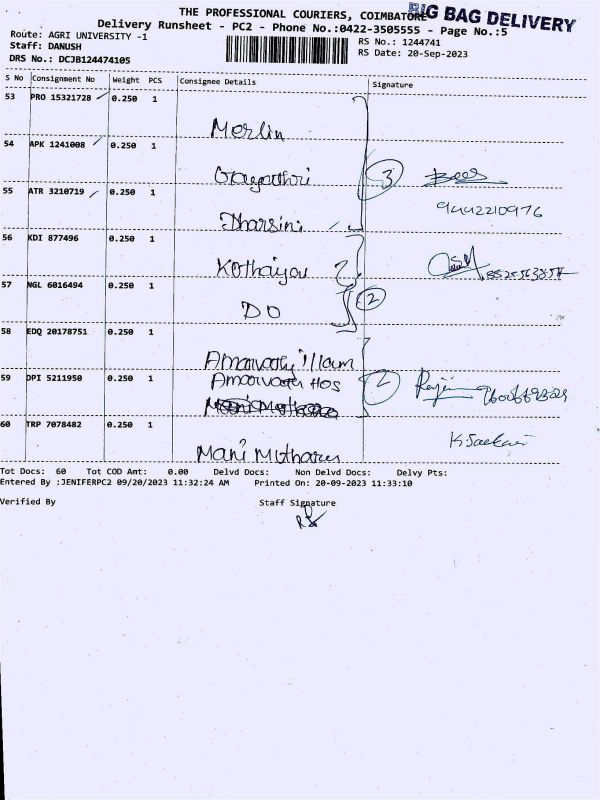 THE PROFESSIONAL COURIERS, COIMBATORE
BIG BAG DELIVERY
Delivery Runsheet - PC2 - Phone No.:0422-3505555 - Page No.:5
Route: AGRI UNIVERSITY -1
RS No.: 1244741
Staff: DANUSH
RS Date: 20-Sep-2023
DRS No.: DCJB124474105
S No Consignment No Weight PCS Consignee Details Signature
53 PRO 15321728 0.250 1
Merlin
54 APK 1241008 0.250 1
Gayathri 3
55 ATR 3210719 0.250 1
9442210976
Dharsini
56 KDI 877496 0.250 1
Kothaiyar
57 NGL 6016494 0.250 1
DO 2
58 EDQ 20178751 0.250 1
Amaravathy illam
59 DPI 5211950 0.250 1
Amaravathi HOS 2
60 TRP 7078482 0.250 1
Mani Mutharu
Tot Docs: 60 Tot COD Amt: 0.00 Delvd Docs: Non Delvd Docs: Delvy Pts:
Entered By :JENIFERPC2 09/20/2023 11:32:24 AM Printed On: 20-09-2023 11:33:10
Verified By Staff Signature